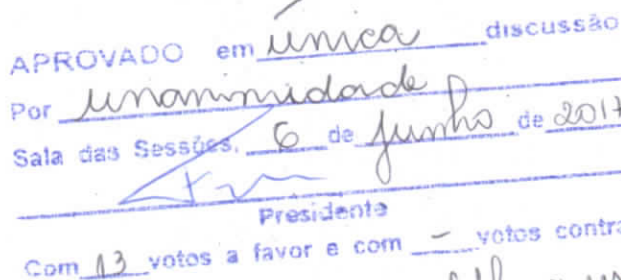 APROVADO em única discussão
Por unanimidade
Sala das Sessões, 6 de junho de 2017
Presidente
Com 13 votos a favor e com - votos contra